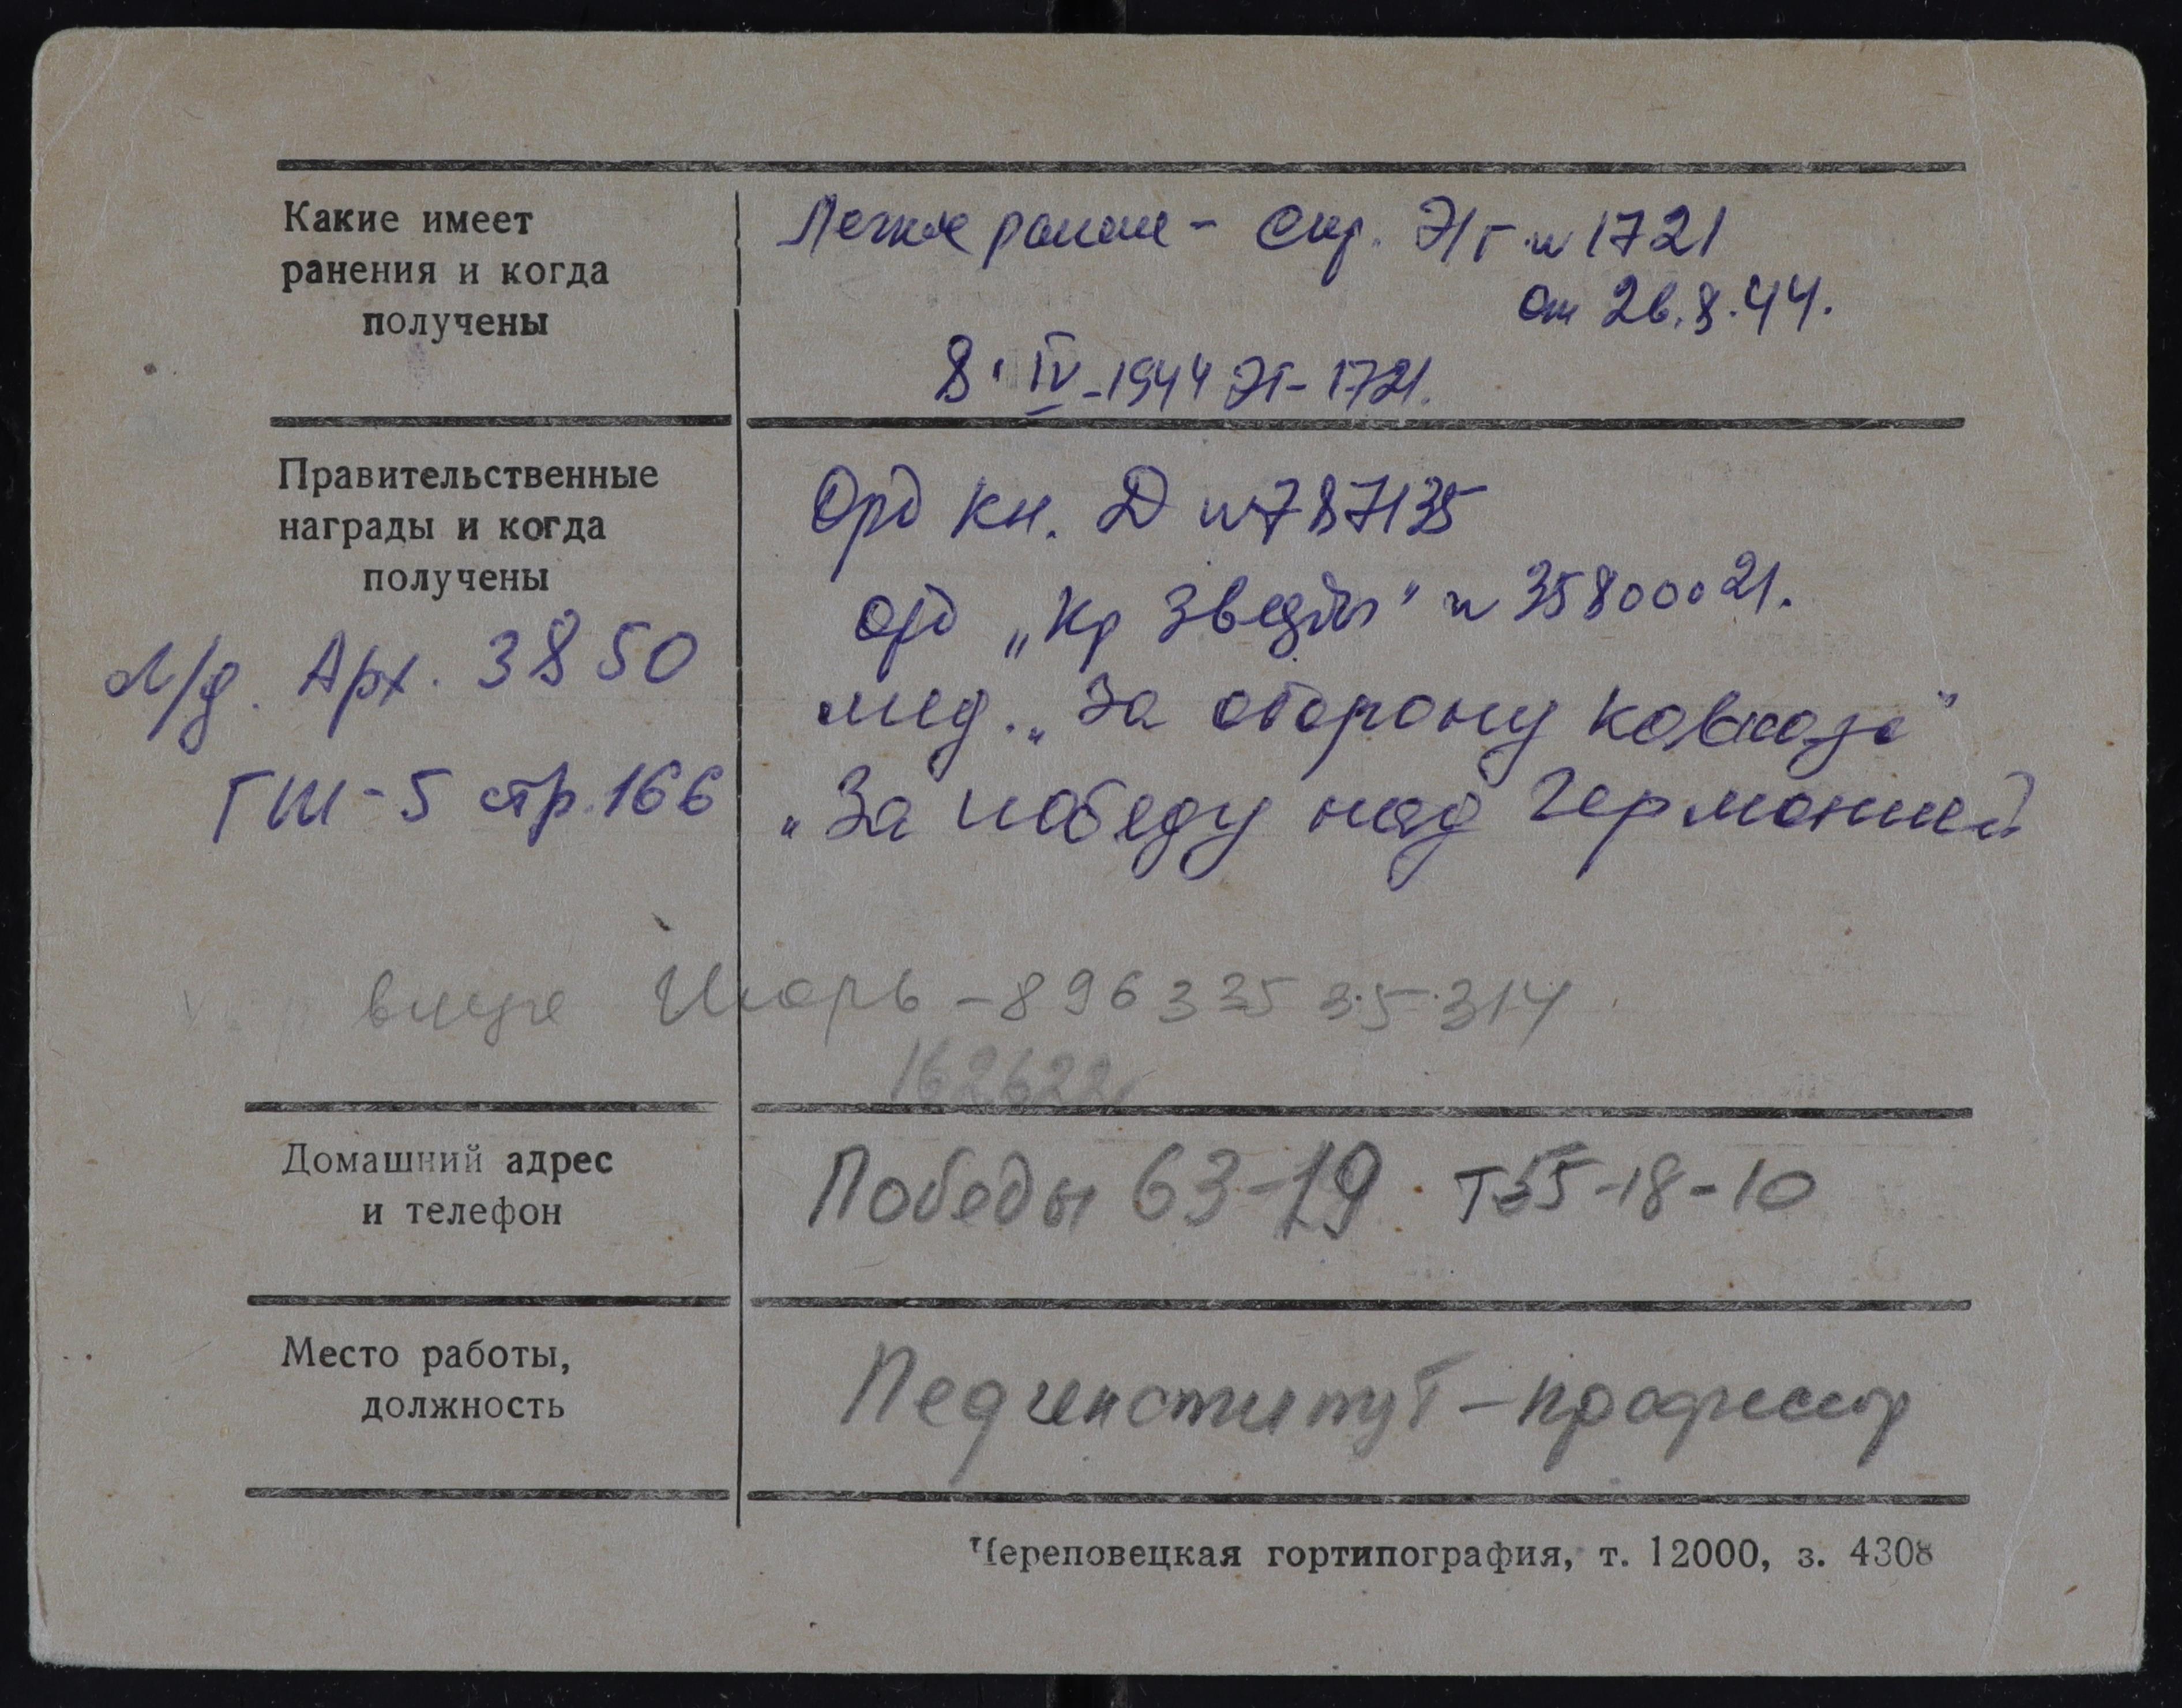 Какие имеет
ранения и когда
получены
Легкое ранение - Спр. ЭГ № 1721
от 26.8.44.
8. IV - 1944 ЭГ - 1721.
Правительственные
награды и когда
получены
Л/д. Арх. 3850
ГШ-5 стр. 166
Орд Кн. Д № 787135
орд „Кр Звезды" № 35800021.
мед. „За оборону Кавказа"
„За победу над Германией
внук Игорь - 896335 35 314
162622
Домашний адрес
и телефон
Победы 63-19. Т 55-18-10
Место работы,
должность
Пединститут - профессор
Череповецкая гортипография, т. 12000, з. 4308